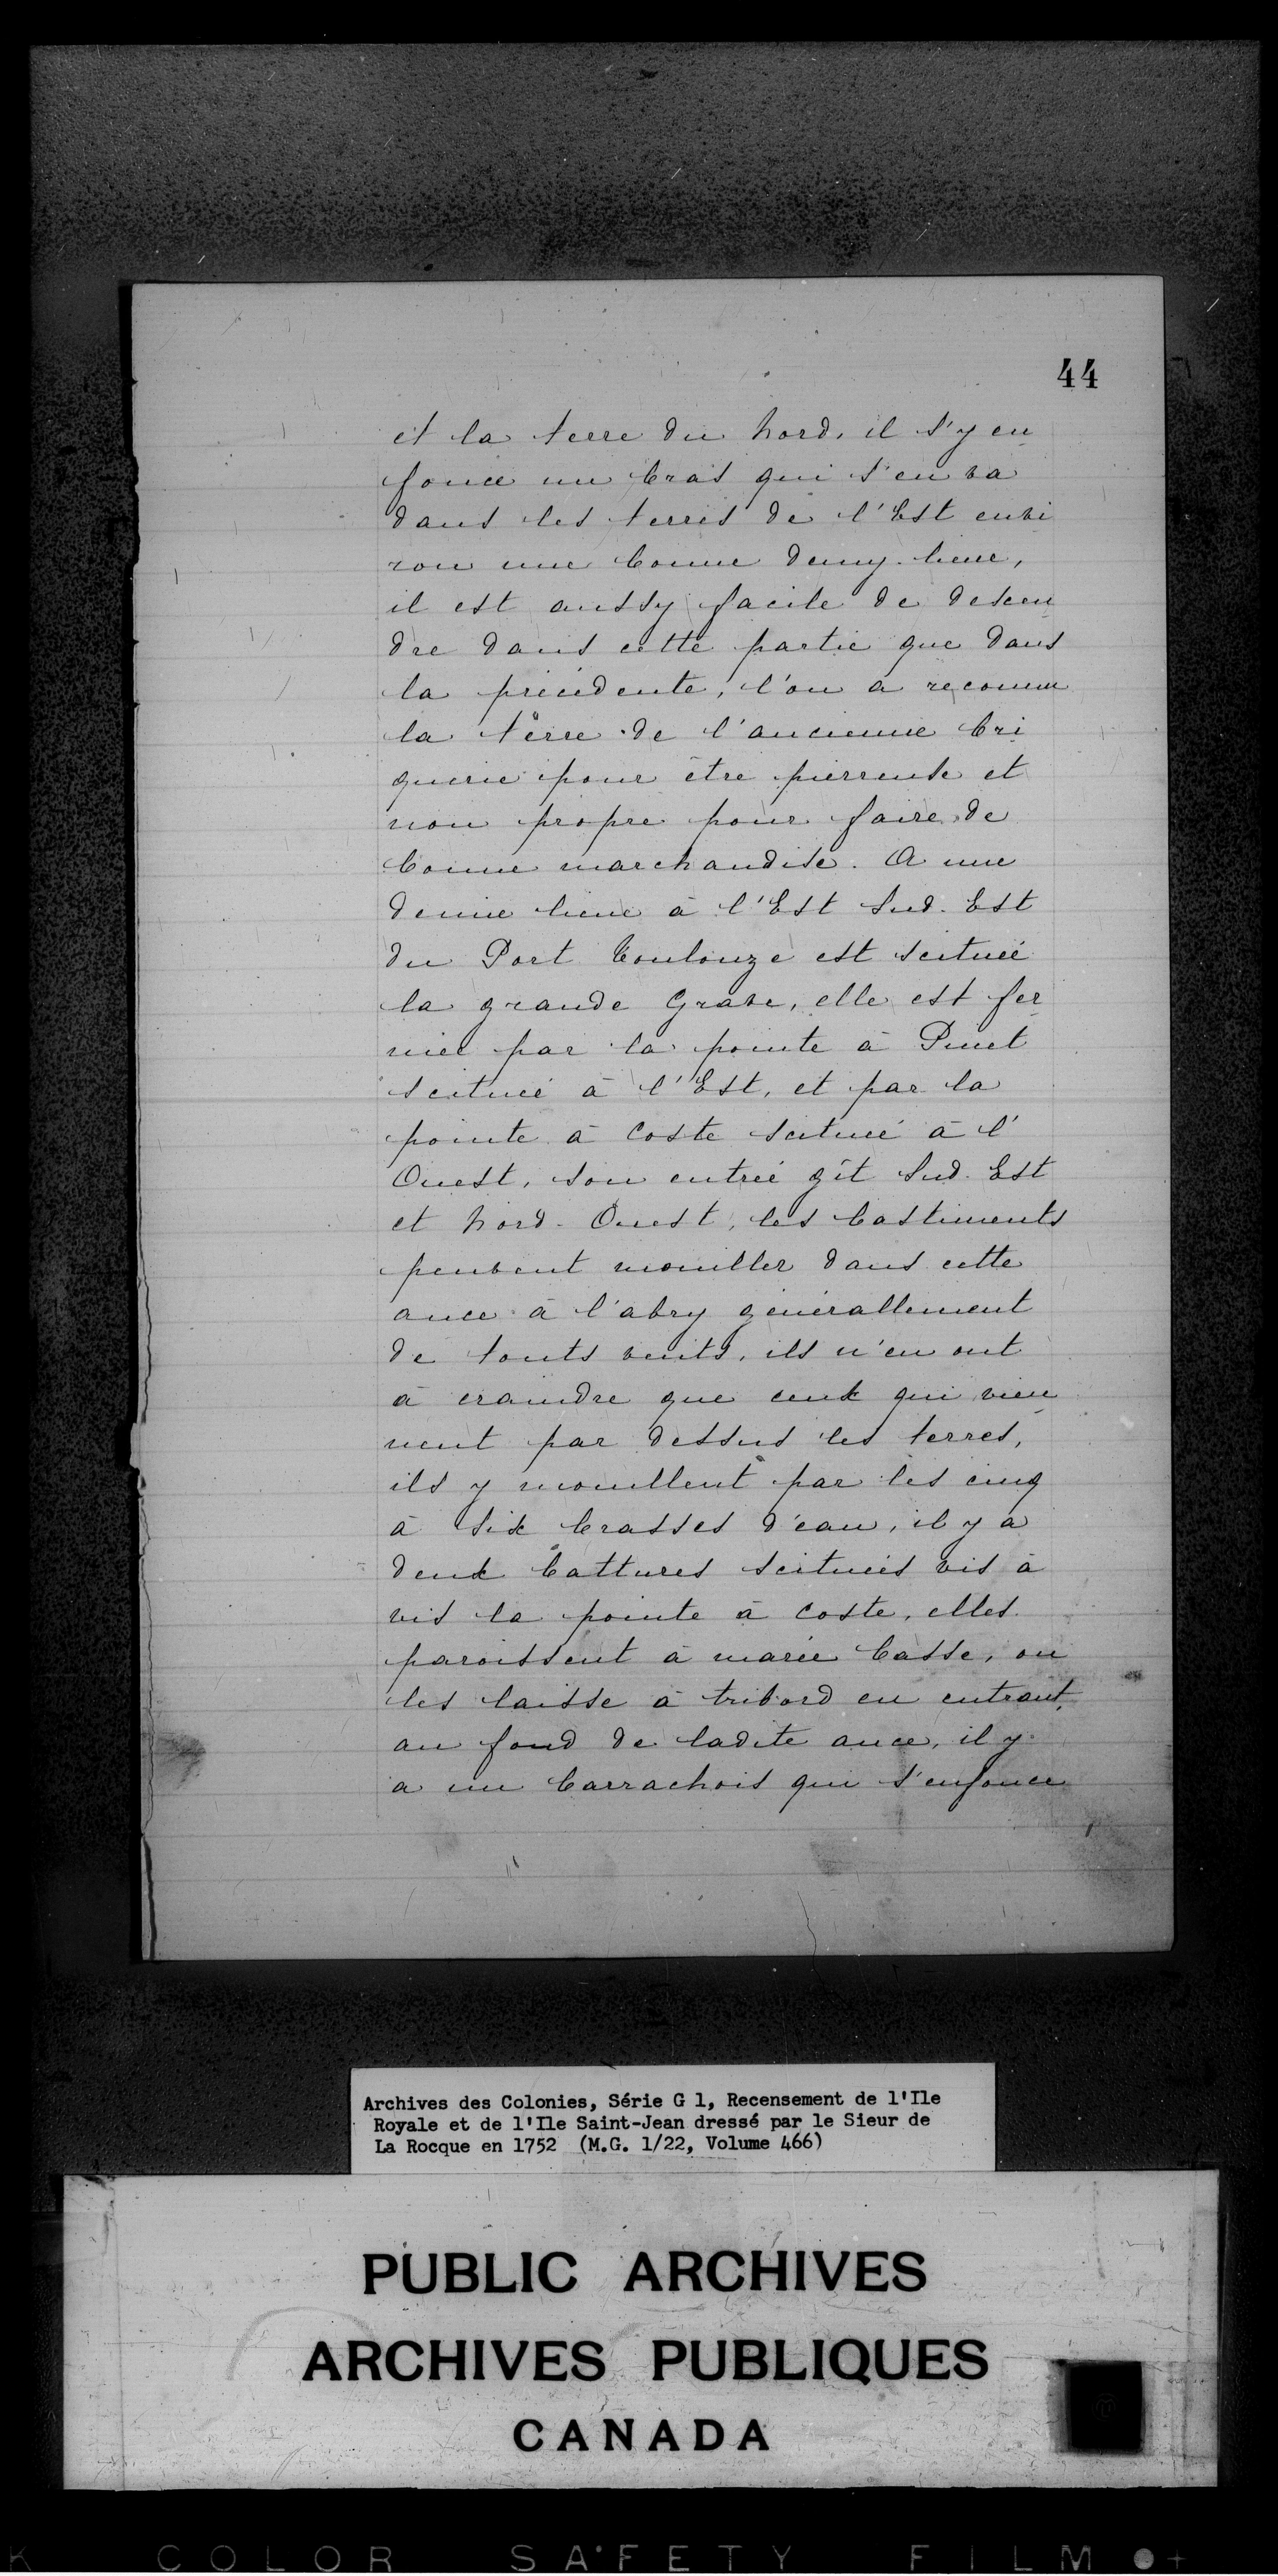 44
et la terre du nord, il s'y en
fonce un bras qui s'en va
dans les terres de l'Est envi
ron une bonne demy-lieue,
il est aussy facile de descen
dre dans cette partie que dans
la précédente, l'on a reconnu
la terre de l'ancienne bri
querie pour être pierreuse et
non propre pour faire de
bonne marchandise. A une
demie lieue à l'Est Sud-Est
du Port Toulouze est scituée
la grande Grave, elle est fer
mée par la pointe à Pinet
scituée à l'Est, et par la
pointe à Coste scituée à l'
Ouest, son entrée gît Sud-Est
et Nord-Ouest, les bastiments
peuvent mouiller dans cette
ance à l'abry générallement
de touts vents, ils n'en ont
à craindre que ceux qui vien
nent par dessus les terres,
ils y mouillent par les cinq
à six brasses d'eau, il y a
deux battures scituées vis à
vis la pointe à Coste, elles
paroissent à marée basse, on
les laisse à tribord en entrant,
au fond de ladite ance, il y
a un barrachois qui s'enfonce
Archives des Colonies, Série G 1, Recensement de l'Ile
Royale et de l'Ile Saint-Jean dressé par le Sieur de
La Rocque en 1752 (M.G. 1/22, Volume 466)
PUBLIC ARCHIVES
ARCHIVES PUBLIQUES
CANADA
K COLOR SAFETY FILM